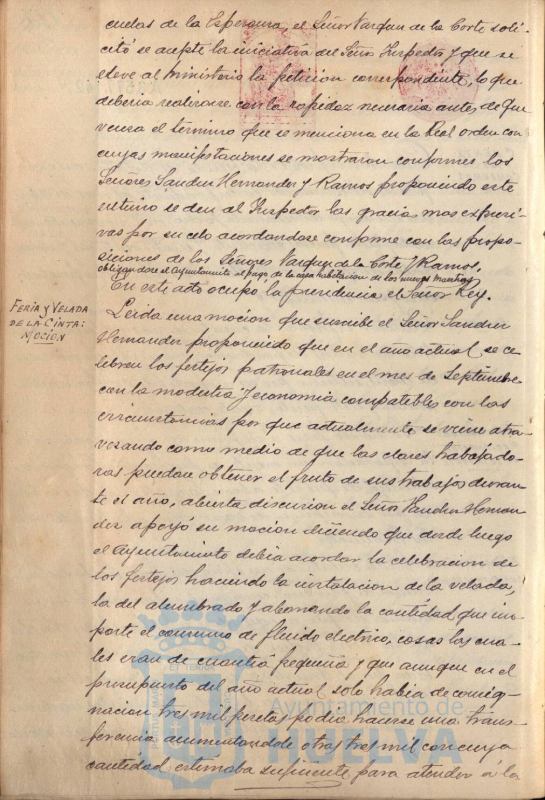 cuelas de la Esperanza, el Señor Vazquez de la Corte soli-
citó se acepte la iniciativa del Señor Inspector y que se
eleve al Ministerio la peticion correspondiente, lo que
deberia realizarse con la rapidez necesaria antes de que
venza el término que se menciona en la Real orden con
cuyas manifestaciones se mostraron conformes los
Señores Sanchez Hernandez y Ramos proponiendo este
ultimo se den al Inspector las gracias mas expresi-
vas por su celo acordandose conforme con las propo-
siciones de los Señores Vazquez de la Corte y Ramos,
obligandose el Ayuntamiento al pago de la casa habitacion de los nuevos maestros
En este acto ocupo la presidencia el Señor Rey.
FERIA Y VELADA
DE LA CINTA:
MOCIÓN
Leida una mocion que suscribe el Señor Sanchez
Hernandez proponiendo que en el año actual se ce-
lebren los festejos patronales en el mes de Septiembre
con la modestia y economia compatibles con las
circunstancias por que actualmente se viene atra-
vesando como medio de que las clases trabajado-
ras puedan obtener el fruto de sus trabajos duran-
te el año, abierta discusion el Señor Sanchez Hernan-
dez apoyó su mocion diciendo que desde luego
el Ayuntamiento debia acordar la celebracion de
los festejos haciendo la instalacion de la velada,
la del alumbrado y abonando la cantidad que im-
porte el consumo de fluido electrico, cosas las cua-
les eran de cuantia pequeña y que aunque en el
presupuesto del año actual solo habia de consig-
nacion tres mil pesetas podia hacerse una trans-
ferencia aumentandole otras tres mil con cuya
cantidad estimaba suficiente para atender á la
Ayuntamiento de
HUELVA